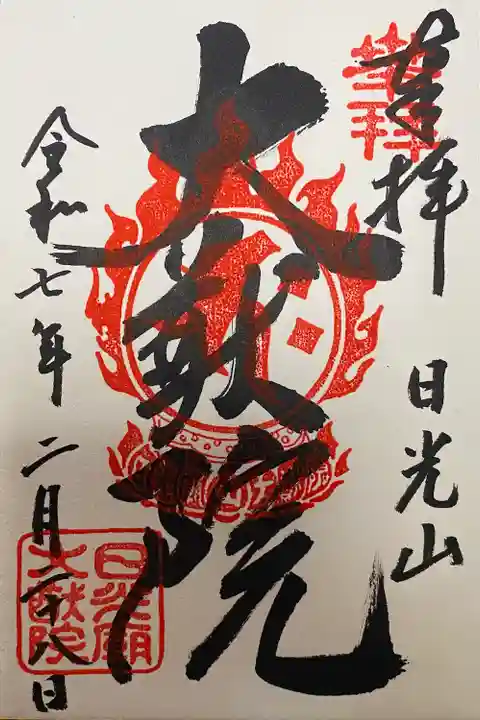 奉拝 日光山
大猷院
令和七年二月二十八日
日光廟
大猷院